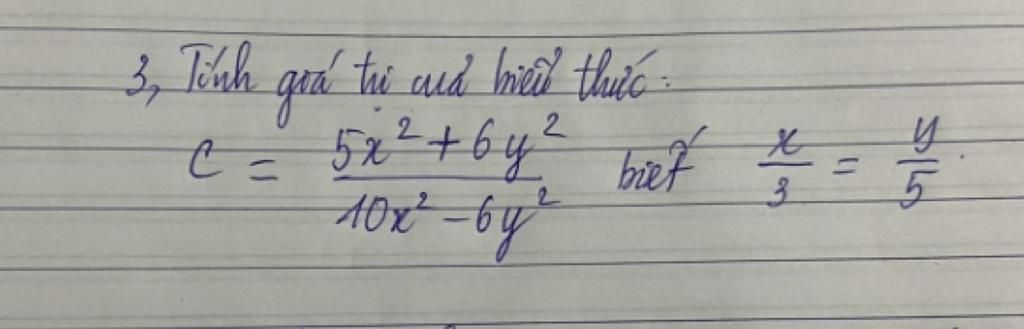 3, Tính giá trị cuả biểu thức:
C = \frac{5x^2 + 6y^2}{10x^2 - 6y^2} biết \frac{x}{3} = \frac{y}{5}.